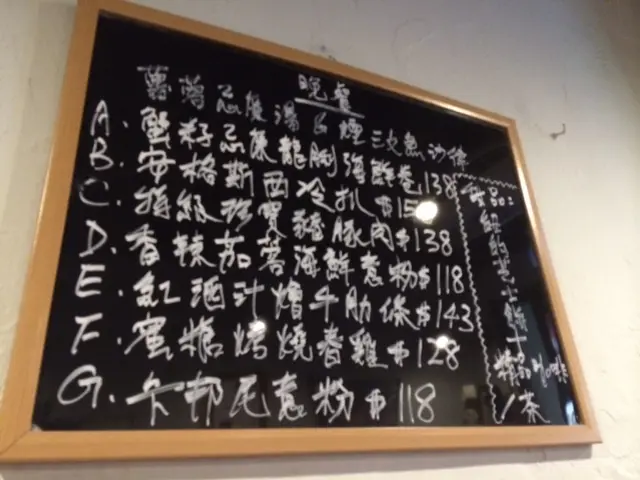 晚餐
薯蓉忌廉湯 & 煙三文魚沙律
A. 蟹籽忌廉龍脷海鮮卷 138
B. 安格斯西冷扒 $15
C. 特級珍寶豬豚肉 $138
D. 香辣茄蓉海鮮意粉 $118
E. 紅酒汁燴牛肋條 $143
F. 蜜糖烤燒春雞 $128
G. 卡邦尼意粉 $118
紐約芝士餅+
精品
/茶